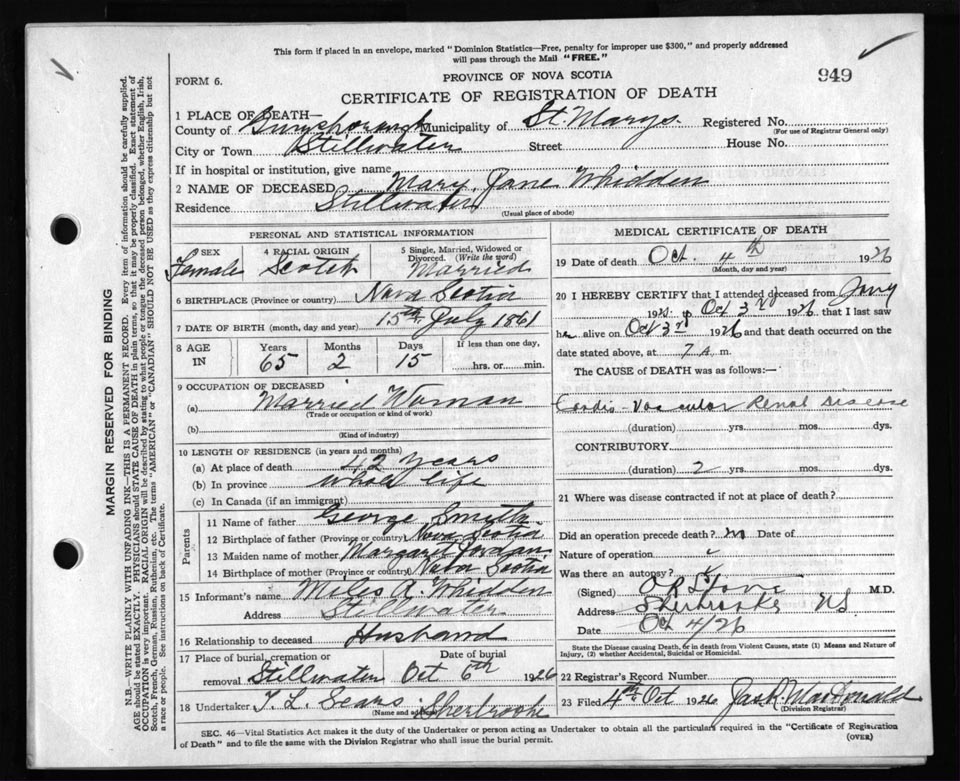 This form if placed in an envelope, marked "Dominion Statistics—Free, penalty for improper use $300," and properly addressed
will pass through the Mail "FREE."
FORM 6.
PROVINCE OF NOVA SCOTIA
949
CERTIFICATE OF REGISTRATION OF DEATH
1 PLACE OF DEATH—
County of Municipality of St. Marys Registered No.
(For use of Registrar General only)
City or Town Stillwater Street House No.
If in hospital or institution, give name
2 NAME OF DECEASED Mary Jane Whidden
Residence Stillwater
(Usual place of abode)
PERSONAL AND STATISTICAL INFORMATION
3 SEX 4 RACIAL ORIGIN 5 Single, Married, Widowed or
Divorced. (Write the word)
Female Scotch Married
6 BIRTHPLACE (Province or country) Nova Scotia
7 DATE OF BIRTH (month, day and year) 15th July 1861
8 AGE IN Years Months Days If less than one day,
65 2 15 hrs. or min.
9 OCCUPATION OF DECEASED
(a) Married Woman
(Trade or occupation or kind of work)
(b)
(Kind of industry)
10 LENGTH OF RESIDENCE (in years and months)
(a) At place of death 42 years
(b) In province whole life
(c) In Canada (if an immigrant)
Parents
11 Name of father George Smith
12 Birthplace of father (Province or country) Nova Scotia
13 Maiden name of mother Margaret Jordan
14 Birthplace of mother (Province or country) Nova Scotia
15 Informant's name Miles A. Whidden
Address Stillwater
16 Relationship to deceased Husband
17 Place of burial, cremation or Date of burial
removal Stillwater Oct 6th 1926
18 Undertaker T. L. Sears Sherbrooke
(Name and address)
MEDICAL CERTIFICATE OF DEATH
19 Date of death Oct. 4th 1926
(Month, day and year)
20 I HEREBY CERTIFY that I attended deceased from
Oct 3rd 1926, that I last saw
her alive on Oct 3rd 1926 and that death occurred on
date stated above, at 7 A. m.
The CAUSE of DEATH was as follows:—
Cardio-Vascular Renal Disease
(duration) yrs. mos. dys.
CONTRIBUTORY
(duration) 2 yrs. mos. dys.
21 Where was disease contracted if not at place of death?
Did an operation precede death? Date of
Nature of operation
Was there an autopsy?
(Signed) M.D.
Address Sherbrooke NS
Date Oct 4/26
State the Disease causing Death, or in death from Violent Causes, state (1) Means and Nature of
Injury, (2) whether Accidental, Suicidal or Homicidal.
22 Registrar's Record Number
23 Filed 4th Oct 1926 Jas. R. MacDonald
(Division Registrar)
SEC. 46—Vital Statistics Act makes it the duty of the Undertaker or person acting as Undertaker to obtain all the particulars required in the "Certificate of Registration
of Death" and to file the same with the Division Registrar who shall issue the burial permit.
(OVER)
MARGIN RESERVED FOR BINDING
N.B.—WRITE PLAINLY WITH UNFADING INK—THIS IS A PERMANENT RECORD. Every item of information should be carefully supplied.
AGE should be stated EXACTLY. PHYSICIANS should STATE CAUSE OF DEATH in plain terms, so that it may be properly classified. Exact statement of
OCCUPATION is very important. RACIAL ORIGIN will be described by stating to what people or tongue the deceased person belonged, whether English, Irish,
Scotch, French, German, Russian, Ruthenian, etc. The terms "AMERICAN" or "CANADIAN" SHOULD NOT BE USED as they express citizenship but not
a race or people. See instructions on back of Certificate.